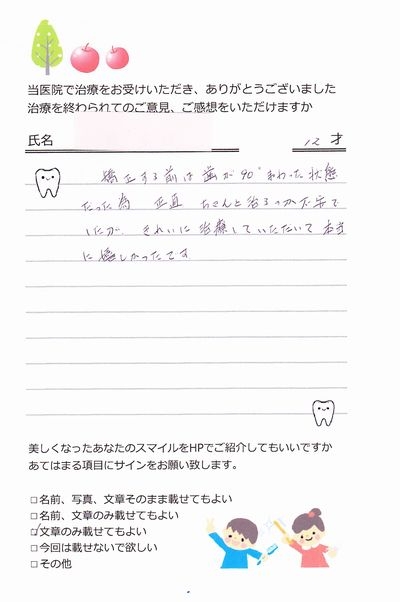 当医院で治療をお受けいただき、ありがとうございました
治療を終わられてのご意見、ご感想をいただけますか
氏名 12 才
矯正する前は歯が90°まわった状態
だった為 正直 ちゃんと治るのか不安で
したが、きれいに治療していただいて本当
に嬉しかったです
美しくなったあなたのスマイルをHPでご紹介してもいいですか
あてはまる項目にサインをお願い致します。
□名前、写真、文章そのまま載せてもよい
□名前、文章のみ載せてもよい
☑文章のみ載せてもよい
□今回は載せないで欲しい
□その他